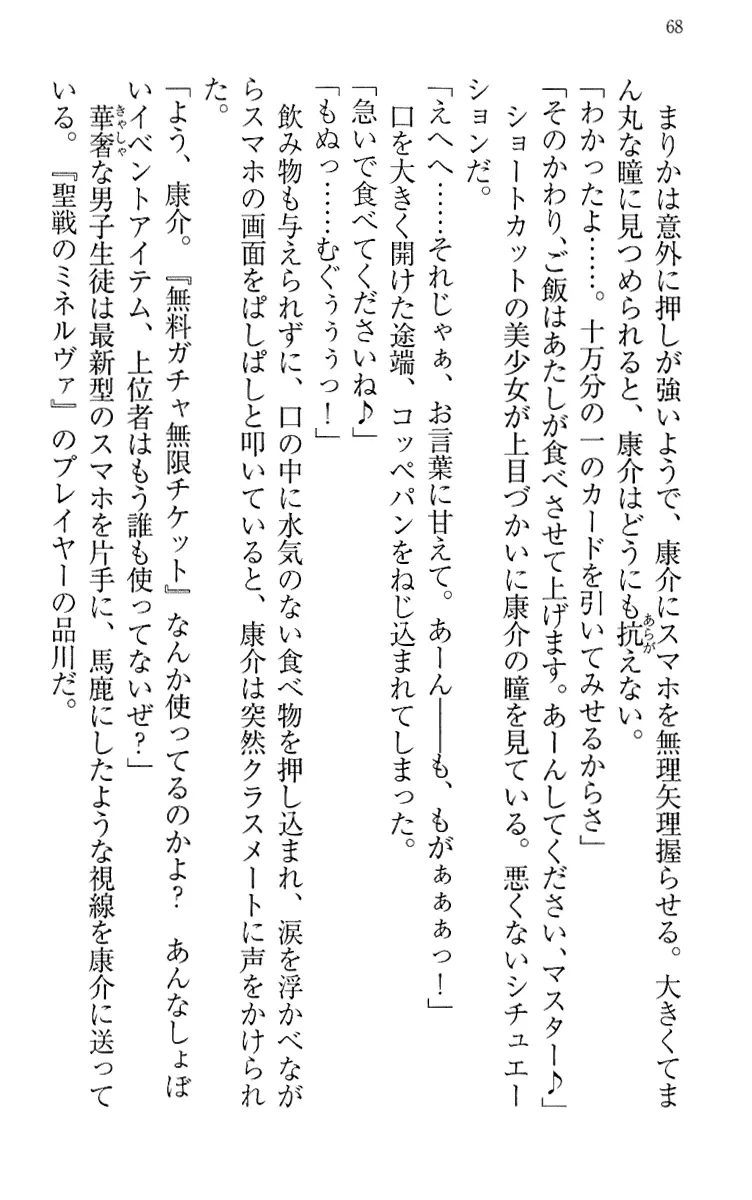 68
　まりかは意外に押しが強いようで、康介にスマホを無理矢理握らせる。大きくてま
ん丸な瞳に見つめられると、康介はどうにも抗えない。
「わかったよ……。十万分の一のカードを引いてみせるからさ」
「そのかわり、ご飯はあたしが食べさせて上げます。あーんしてください、マスター♪」
　ショートカットの美少女が上目づかいに康介の瞳を見ている。悪くないシチュエー
ションだ。
「えへへ……それじゃぁ、お言葉に甘えて。あーん――も、もがぁぁぁっ！」
　口を大きく開けた途端、コッペパンをねじ込まれてしまった。
「急いで食べてくださいね♪」
「もぬっ……むぐぅぅぅっ！」
　飲み物も与えられずに、口の中に水気のない食べ物を押し込まれ、涙を浮かべなが
らスマホの画面をぱしぱしと叩いていると、康介は突然クラスメートに声をかけられ
た。
「よう、康介。『無料ガチャ無限チケット』なんか使ってるのかよ？　あんなしょぼ
いイベントアイテム、上位者はもう誰も使ってないぜ？」
　華奢な男子生徒は最新型のスマホを片手に、馬鹿にしたような視線を康介に送って
いる。『聖戦のミネルヴァ』のプレイヤーの品川だ。